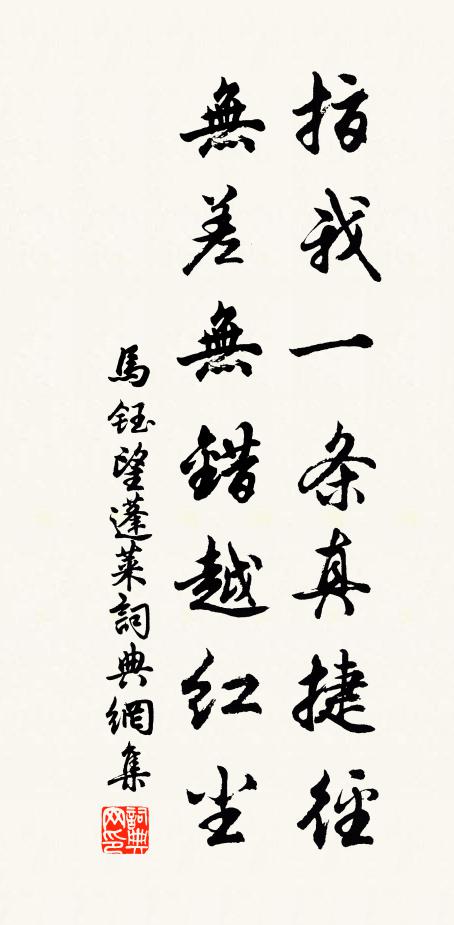 指我一条真捷径
無差無錯越红尘
馬鈺望蓬莱詞典網集
詞典网印